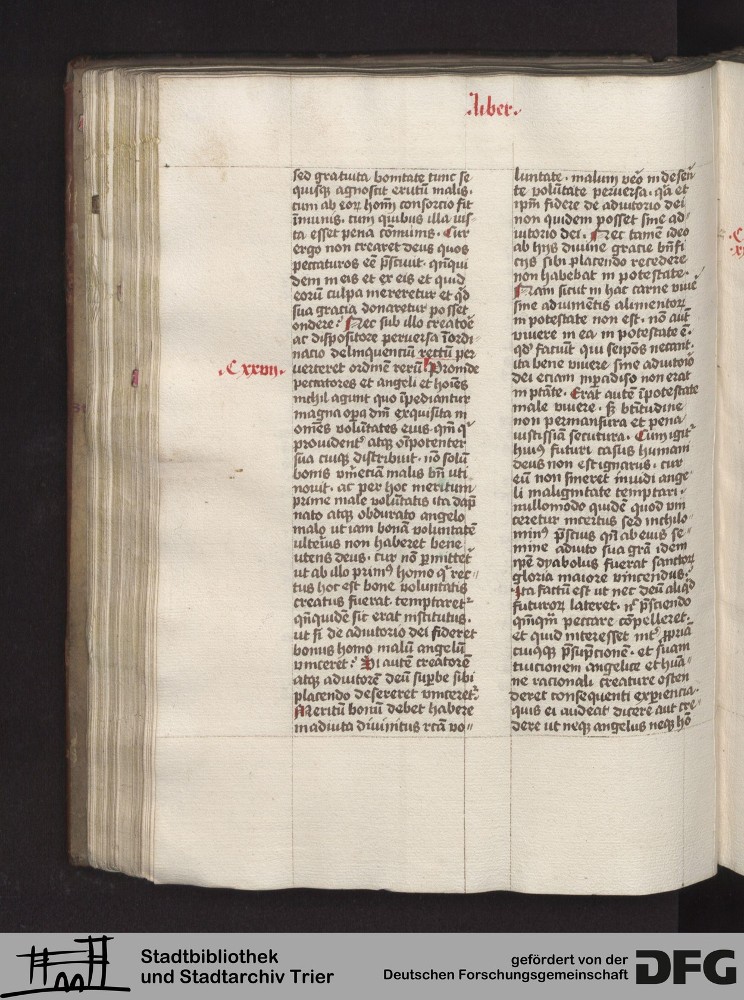 Liber.
sed gratuita bonitate tunc se
quisq; agnoscit erutū malis.
cum ab eoꝝ homī consorcio fit
īmunis. cum quibus illa ius
ta esset pena cōmunis. Cur
ergo non crearet deus quos
peccaturos eē p̄sciuit. qn̄qui
dem in eis et ex eis et quid
eorū culpa mereretur et qd̄
sua gracia donaretur posset
ondere? Nec sub illo creatoē
ac dispositore peruersa īordi
nacio delinquenciū rectū per
Cxxvii.
uerteret ordinē rerū? Proinde
peccatores et angeli et hoīes
nichil agunt quo īpediantur
magna oꝑa dn̄i exquisita in
omēs volūtates eius. qm̄ qͥ
prouident' atq; oīpotenter
sua cuiq; distribuit. nō solū
bonis verūeciā malis bn̄ uti
nouit. ac per hoc meritum
prime male volūtatis ita dap̄
nato atq; obdurato angelo
malo ut iam bonā voluntatē
ulterius non haberet bene
utens deus. cur nō ꝑmittet
ut ab illo primꝰ homo qͥ rec
tus hoc est bone voluntatis
creatus fuerat temptaret
qn̄quidē sic erat īstitutus.
ut si de adiutorio dei fideret
bonus homo malū angelū
vinceret? Si autē creatorē
atq; adiutorē deū suꝑbe sibi
placendo desereret vinceret.
Meritū bonū debet habere
in adiuta diuinitus rcā vo
luntate. malum vero in deseren
te volūtate peruersa. qa et
ipm̄ fidere de adiutorio dei
non quidem posset sine ad
iutorio dei. Nec tamē ideo
ab hiis diuine gratie bn̄fi
ciis sibi placendo recedere
non habebat in potestate.
Nam sicut in hac carne viue
sine adiumētis alimentoꝝ
in potestate non est. nō aut
viuere in ea in potestate ē.
qd̄ faciūt qui seip̄os necant.
ita bene viuere sine adiutorio
dei eciam in ꝑadiso non erat
in ptāte. Erat autē ī potestate
male viuere. sꝫ btitudine
non permansura et pena
iustissiā secutura. Cum igit
huiꝰ futuri casus humani
deus non est ignarus. cur
eū non sineret inuidi ange
li malignitate temptari.
nullomodo quidē quod vin
ceretur incertus sed nichilo
minꝰ p̄scius qn̄ ab eius se
mine adiuto sua grā idem
ip̄e dyabolus fuerat sanctoꝝ
gloria maiore vincendus.
Ita factū est ut nec deū aliqd
futuroꝝ lateret. nͨ p̄sciendo
qm̄qm̄ peccare cōpelleret.
et quid interesset int' ꝓpriā
cuiusq; p̄supcionē. et suam
tuicionem angelice et huā
ne racionali creature osten
deret consequenti exꝑiencia.
quis ei audeat dicere aut cre
dere ut neq; angelus neq; hō
Stadtbibliothek
und Stadtarchiv Trier
gefördert von der
Deutschen Forschungsgemeinschaft
DFG